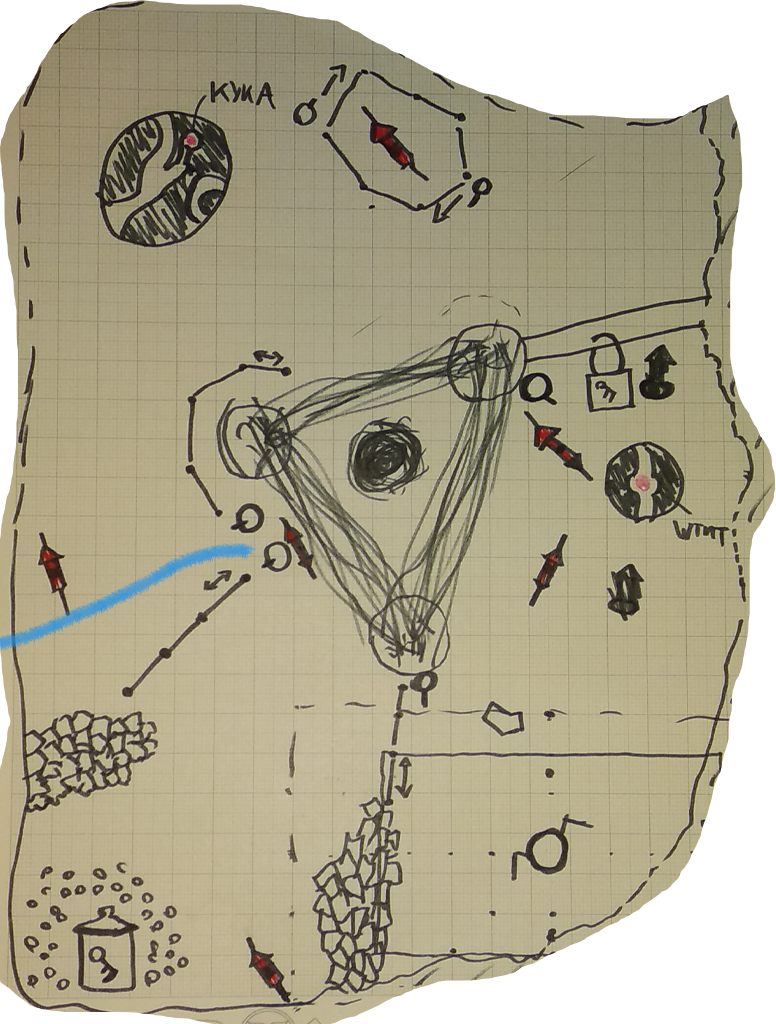 КУКА
WTUT